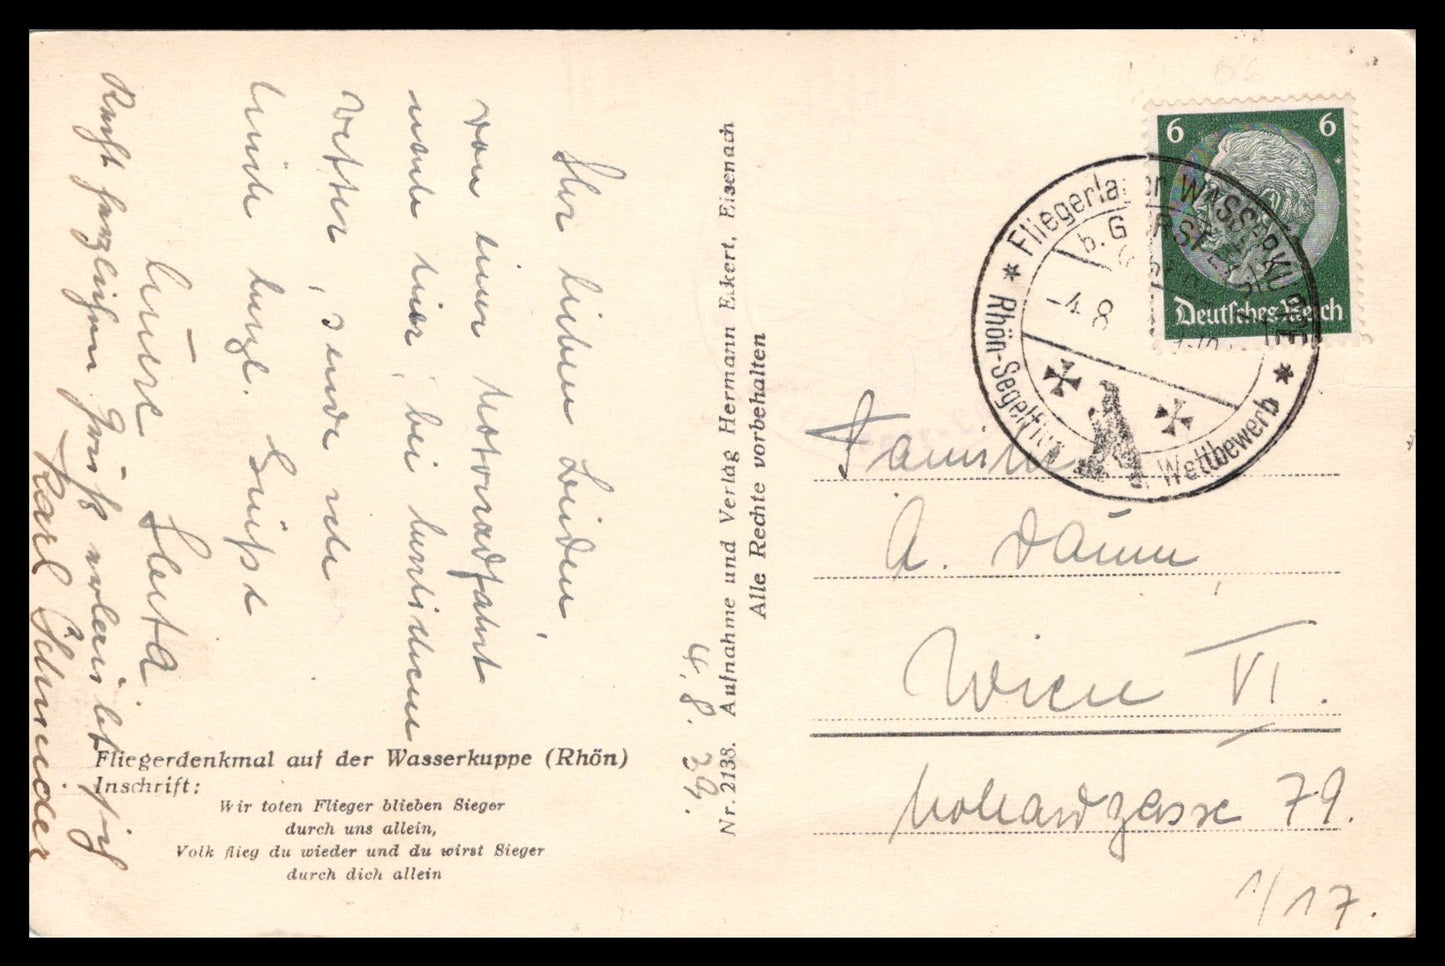 4. 8. 39.
Ihr lieben Beiden,
von einer Motorradfahrt
nach hier, bei herrlichem
Wetter, sende
kurze Grüße
Eure Herta
Recht herzlichen Gruß
Karl Schneider
Fliegerdenkmal auf der Wasserkuppe (Rhön)
Inschrift:
Wir toten Flieger blieben Sieger
durch uns allein,
Volk flieg du wieder und du wirst Sieger
durch dich allein
Nr. 2138. Aufnahme und Verlag Hermann Eckert, Eisenach
Alle Rechte vorbehalten
6 6
Deutsches Reich
* Fliegerlager WASSERKUPPE *
b. GERSFELD
-4. 8
Rhön-Segelflug Wettbewerb
Familie
A. Daum,
Wien VI.
Mollardgasse 79.
1/17.